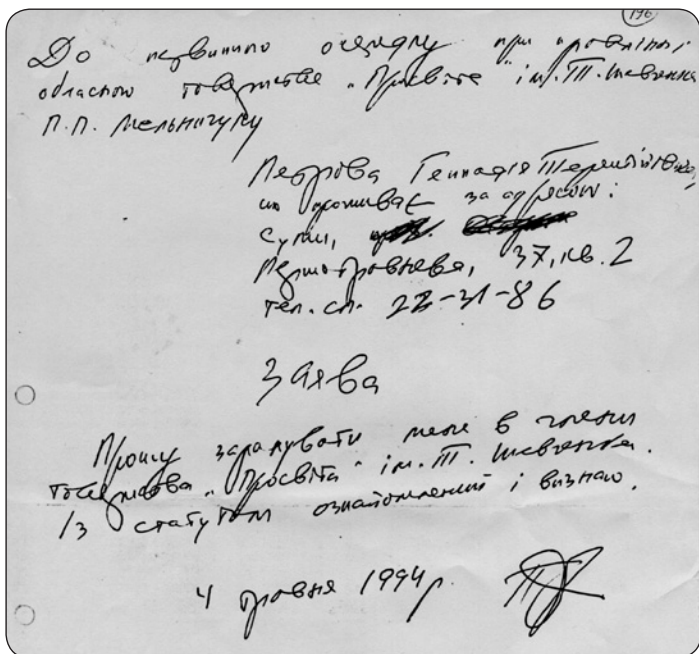 196
До первинного осередку при правлінні
обласного товариства „Просвіта" ім. Т. Шевченка
П.П. Мельничуку
Петрова Геннадія
що проживає за адресою:
Суми,
Першотравнева, 37, кв. 2
тел. сл. 22-31-86
Заява
Прошу зарахувати мене в члени
товариства „Просвіта" ім. Т. Шевченка.
Із статутом ознайомлений і визнаю.
4 травня 1994 р.